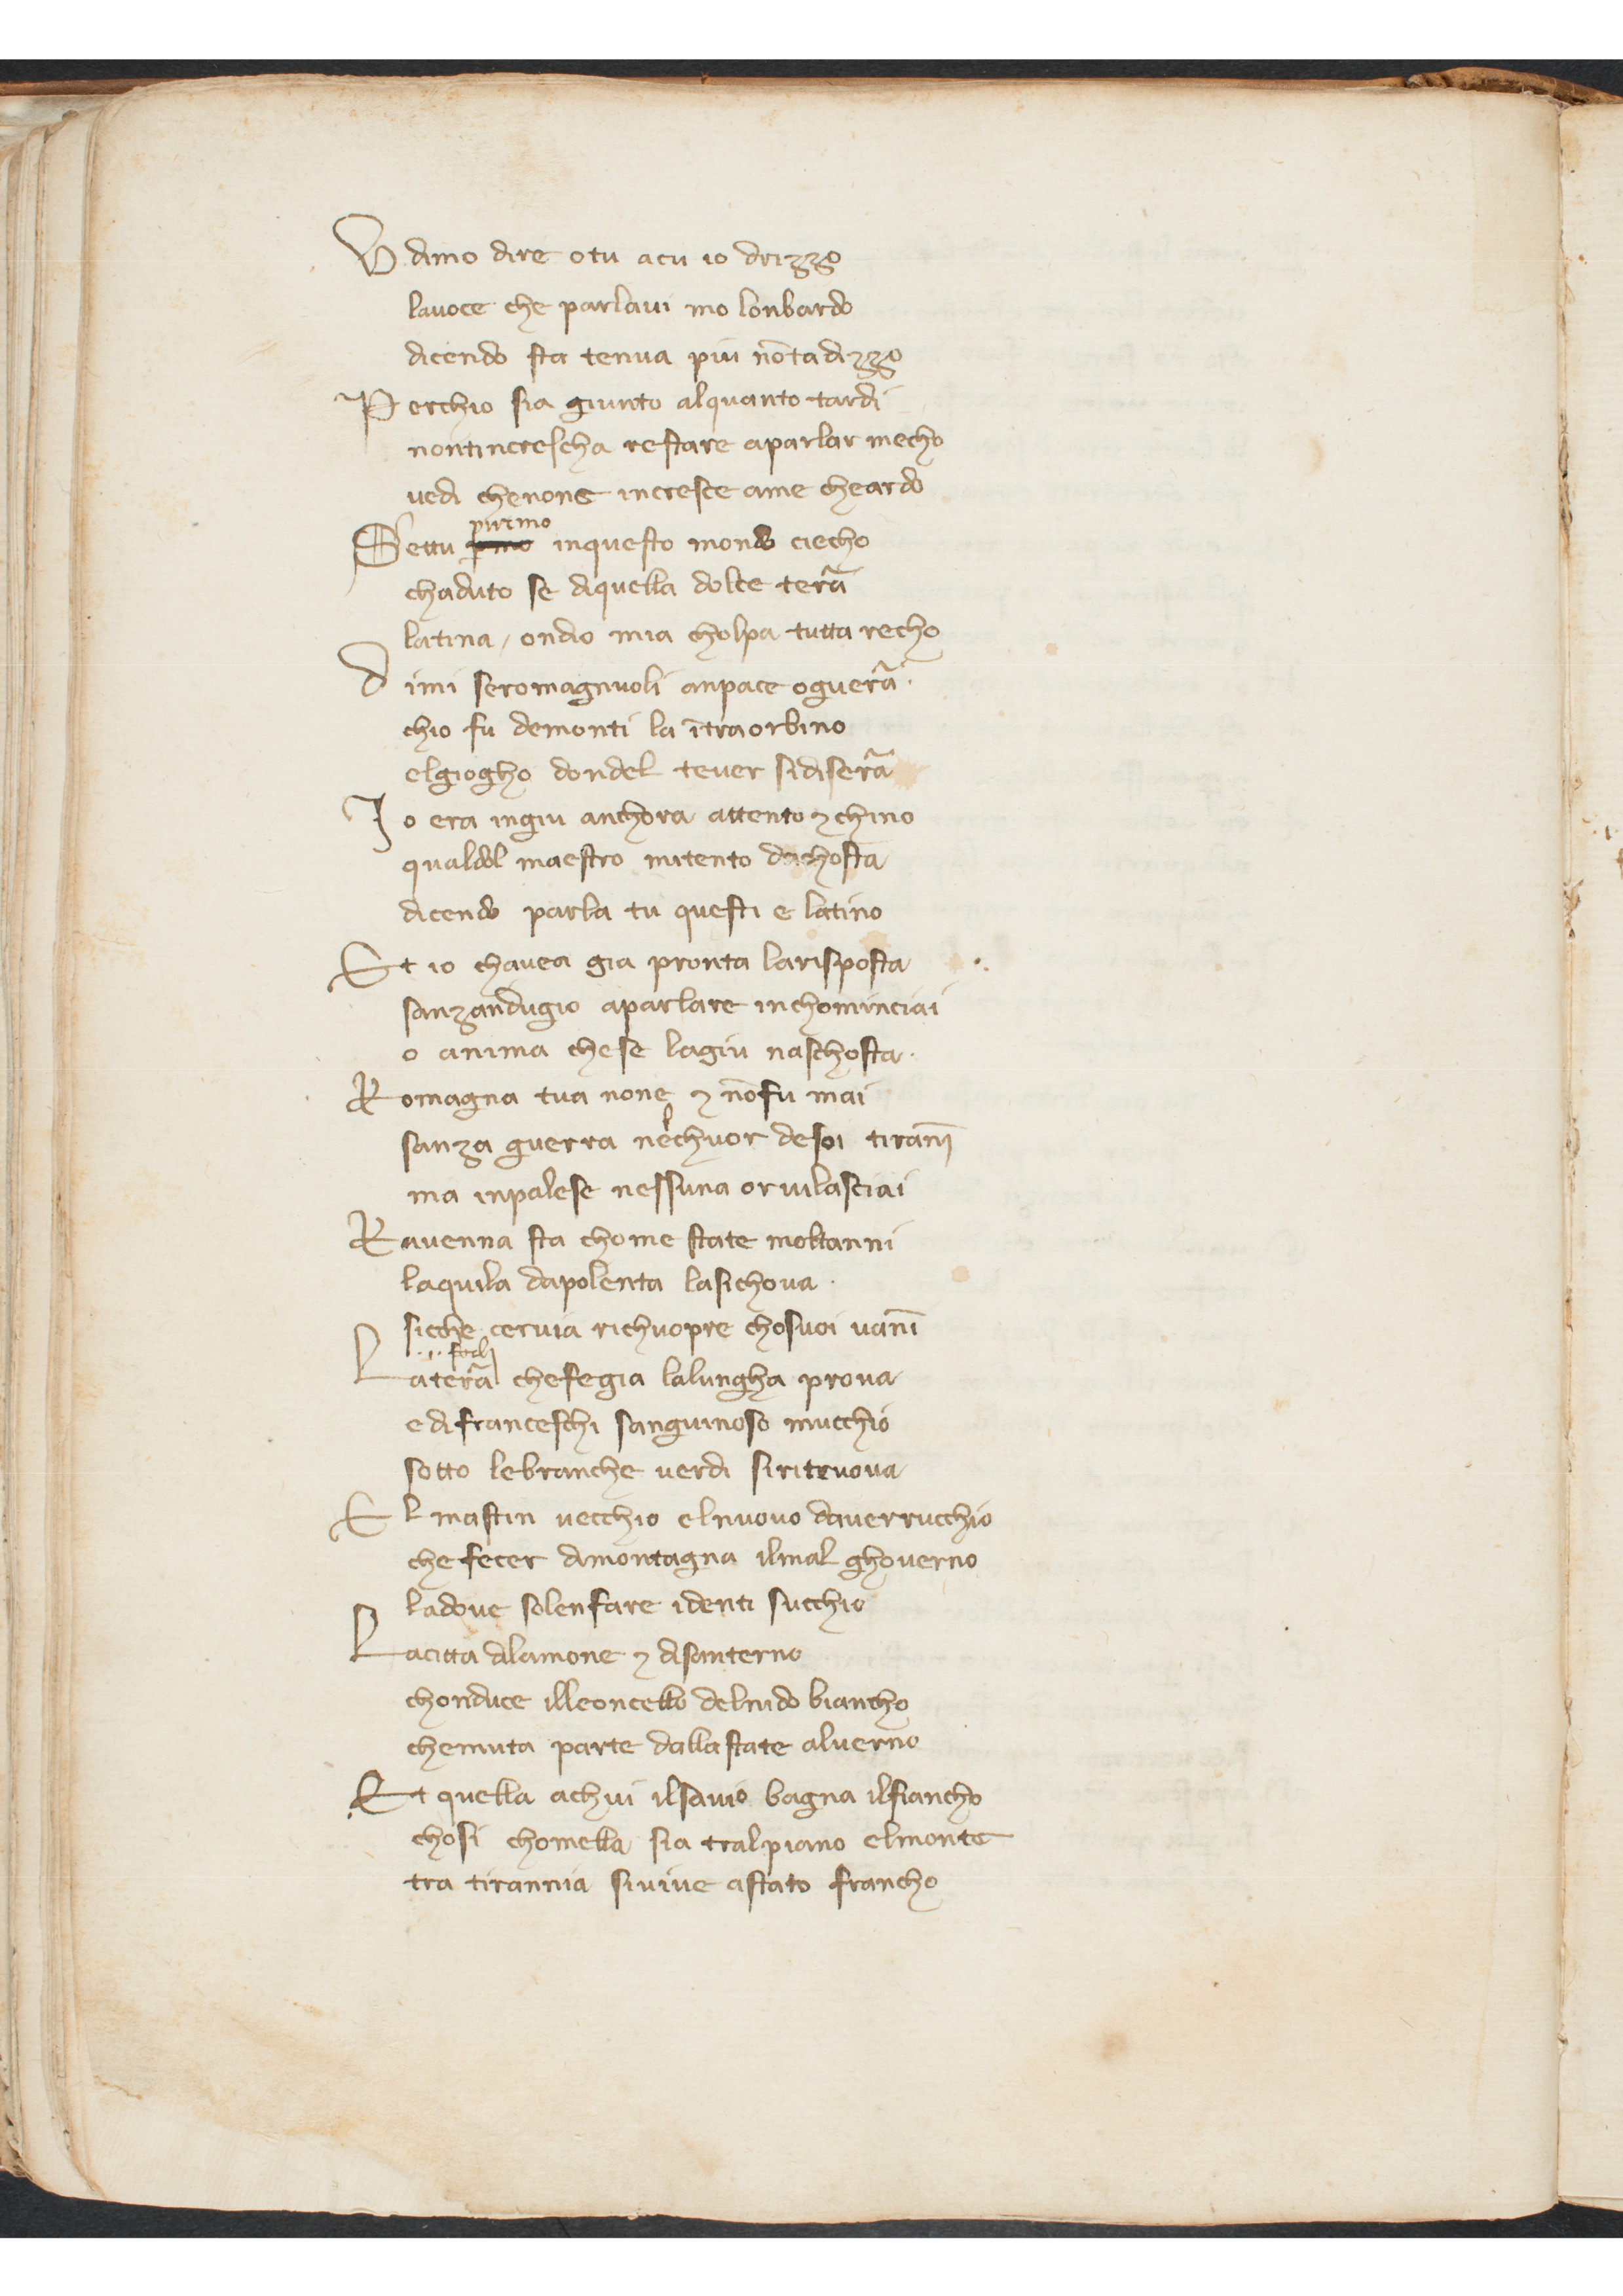 Vdimo dire o tu a cu io drizzo
lavoce che parlavi mo lonbardo
dicendo sta tenva piu nōtadizzo
Perchio sia giunto alquanto tardi
nontincrescha restare aparlar mecho
vedi chenone incresce ame cheardo
Settu purmo inquesto mondo ciecho
chaduto se diquella dolce terā
latina / ondio mia cholpa tutta recho
Dimi seromagnuoli anpace oguerā ·
chio fu demonti la ītraorbino
elgiogho dondel tever sidiserā
Io era ingiu anchora attento ⁊ chino
qualdol maestro mitento dachosta
dicendo parla tu questi e latino
Et io chavea gia pronta larisposta
sanzandugio aparlare inchominciai
o anima chese lagiu naschosta ·
Romagna tua none ⁊ nōfu mai
sanza guerra nelchuor desoi tiranī
ma inpalese nessuna orvilasciai
Ravenna sta chome state moltanni
laquila dapolenta lasichova ·
sicche cervia richuopre chosuoi vanī
forlj
Laterā chefegia lalungha prova
edifranceschi sanguinoso mucchio
sotto lebranche verdi siritruova
El mastin vecchio elnuovo daverrucchio
che fecer dimontagna ilmal ghoverno
ladove solenfare identi succhio
Lacitta dilamone ⁊ disanterno
chonduce illeoncello delnido biancho
chemuta parte dallastate alverno
Et quella achui ilsavio bagna ilfiancho
chosi chomella sia tralpiano elmonte
tra tirannia sivive astato francho